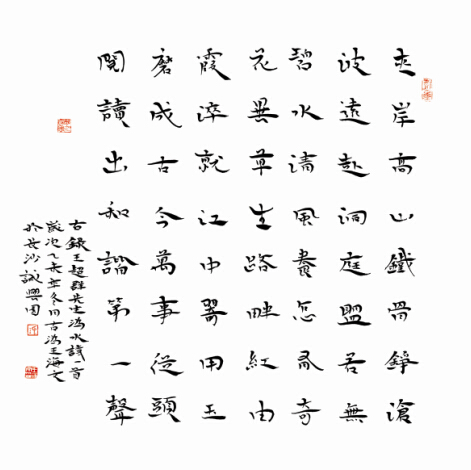 夾岸高山鐵骨錚滄
波遠赴洞庭盟君無
碧水清風養怎奇
花異草生路畔紅由
霞淬就江中器用玉
磨成古今萬事從頭
閱讀出和諧第一聲
古錄王超群先生為水詩一首
歲次乙冬月古為王海文
於長沙誠興園